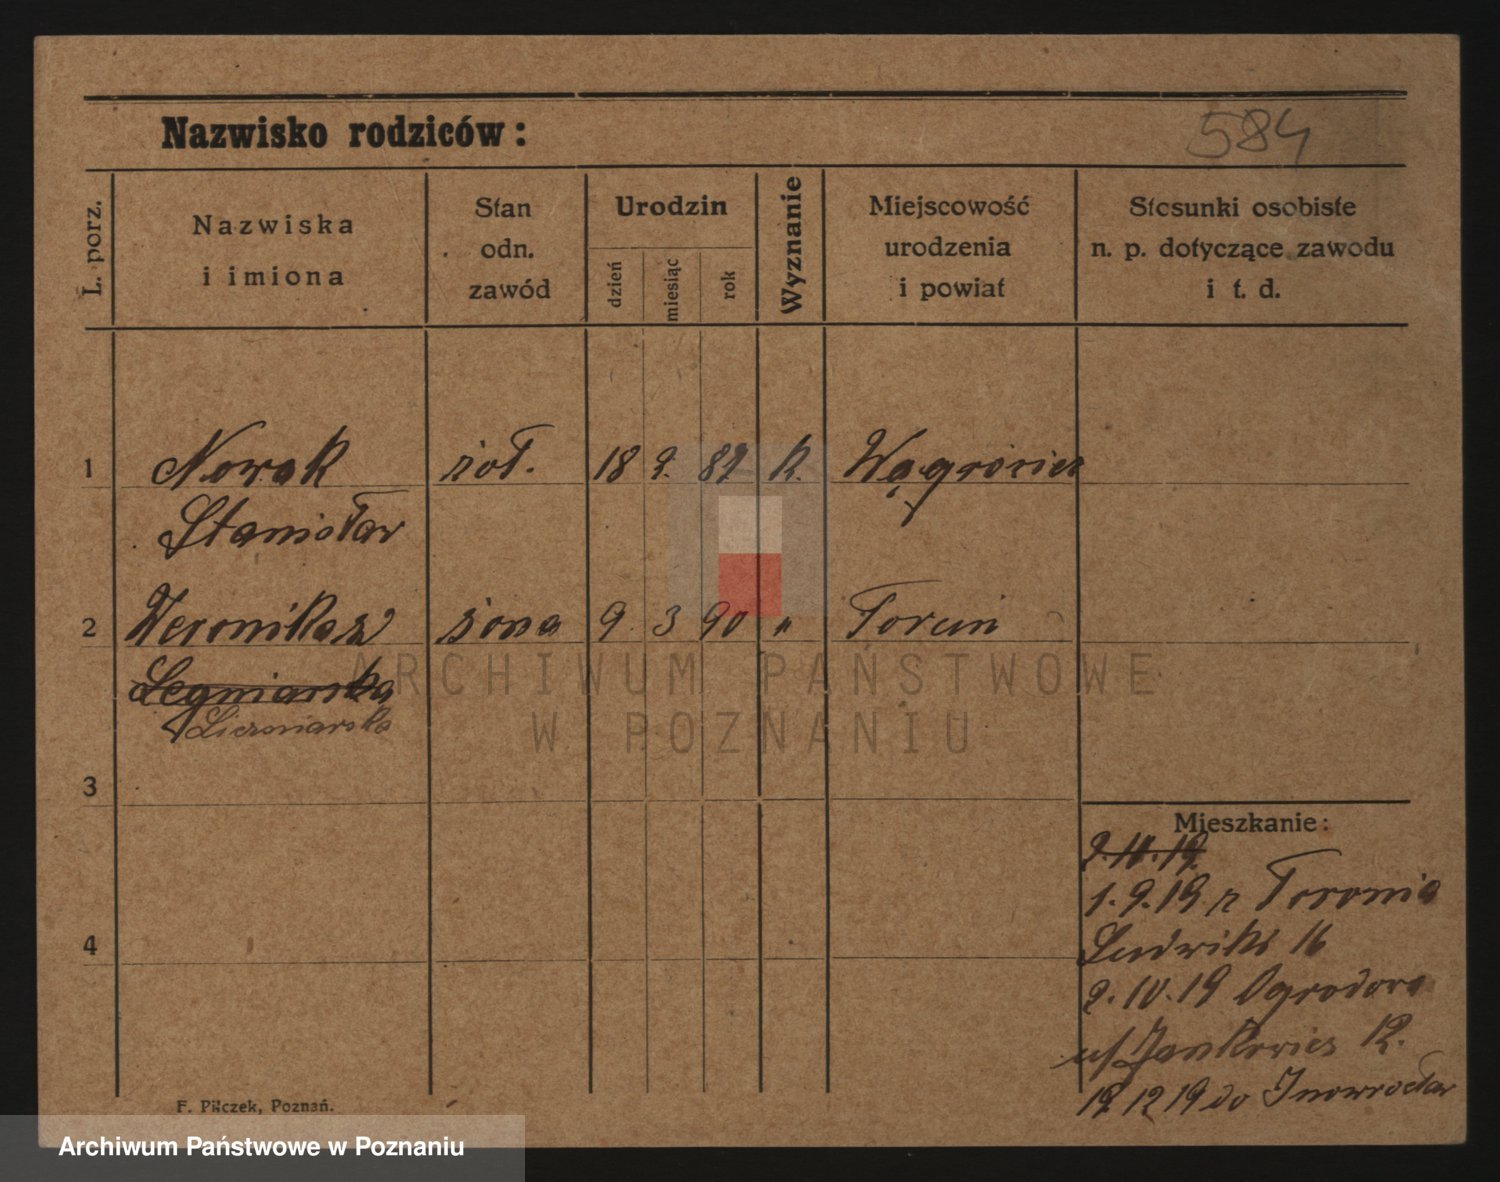 Nazwisko rodziców:
584
L. porz.
Nazwiska
i imiona
Stan
odn.
zawód
Urodzin
dzień
miesiąc
rok
Wyznanie
Miejscowość
urodzenia
i powiat
Stosunki osobiste
n. p. dotyczące zawodu
i t. d.
1 Nowak żoł. 18 9. 89 k.
Stanisław
2 Weronika z żona 9 3 90 " Toruń
Liczmarska
ARCHIWUM PAŃSTWOWE
W POZNANIU
3
Mieszkanie:
1.9.19 z Torunia
4
Ludwiki 16
2.10.19 Ogrodowa
Jankowiez R.
19 12 19 do Inowrocław
F. Pilczek, Poznań.
Archiwum Państwowe w Poznaniu